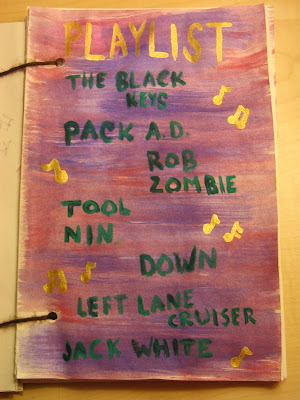 PLAYLIST
THE BLACK
KEYS
PACK A.D.
ROB
ZOMBIE
TOOL
NIN
DOWN
LEFT LANE
CRUISER
JACK WHITE